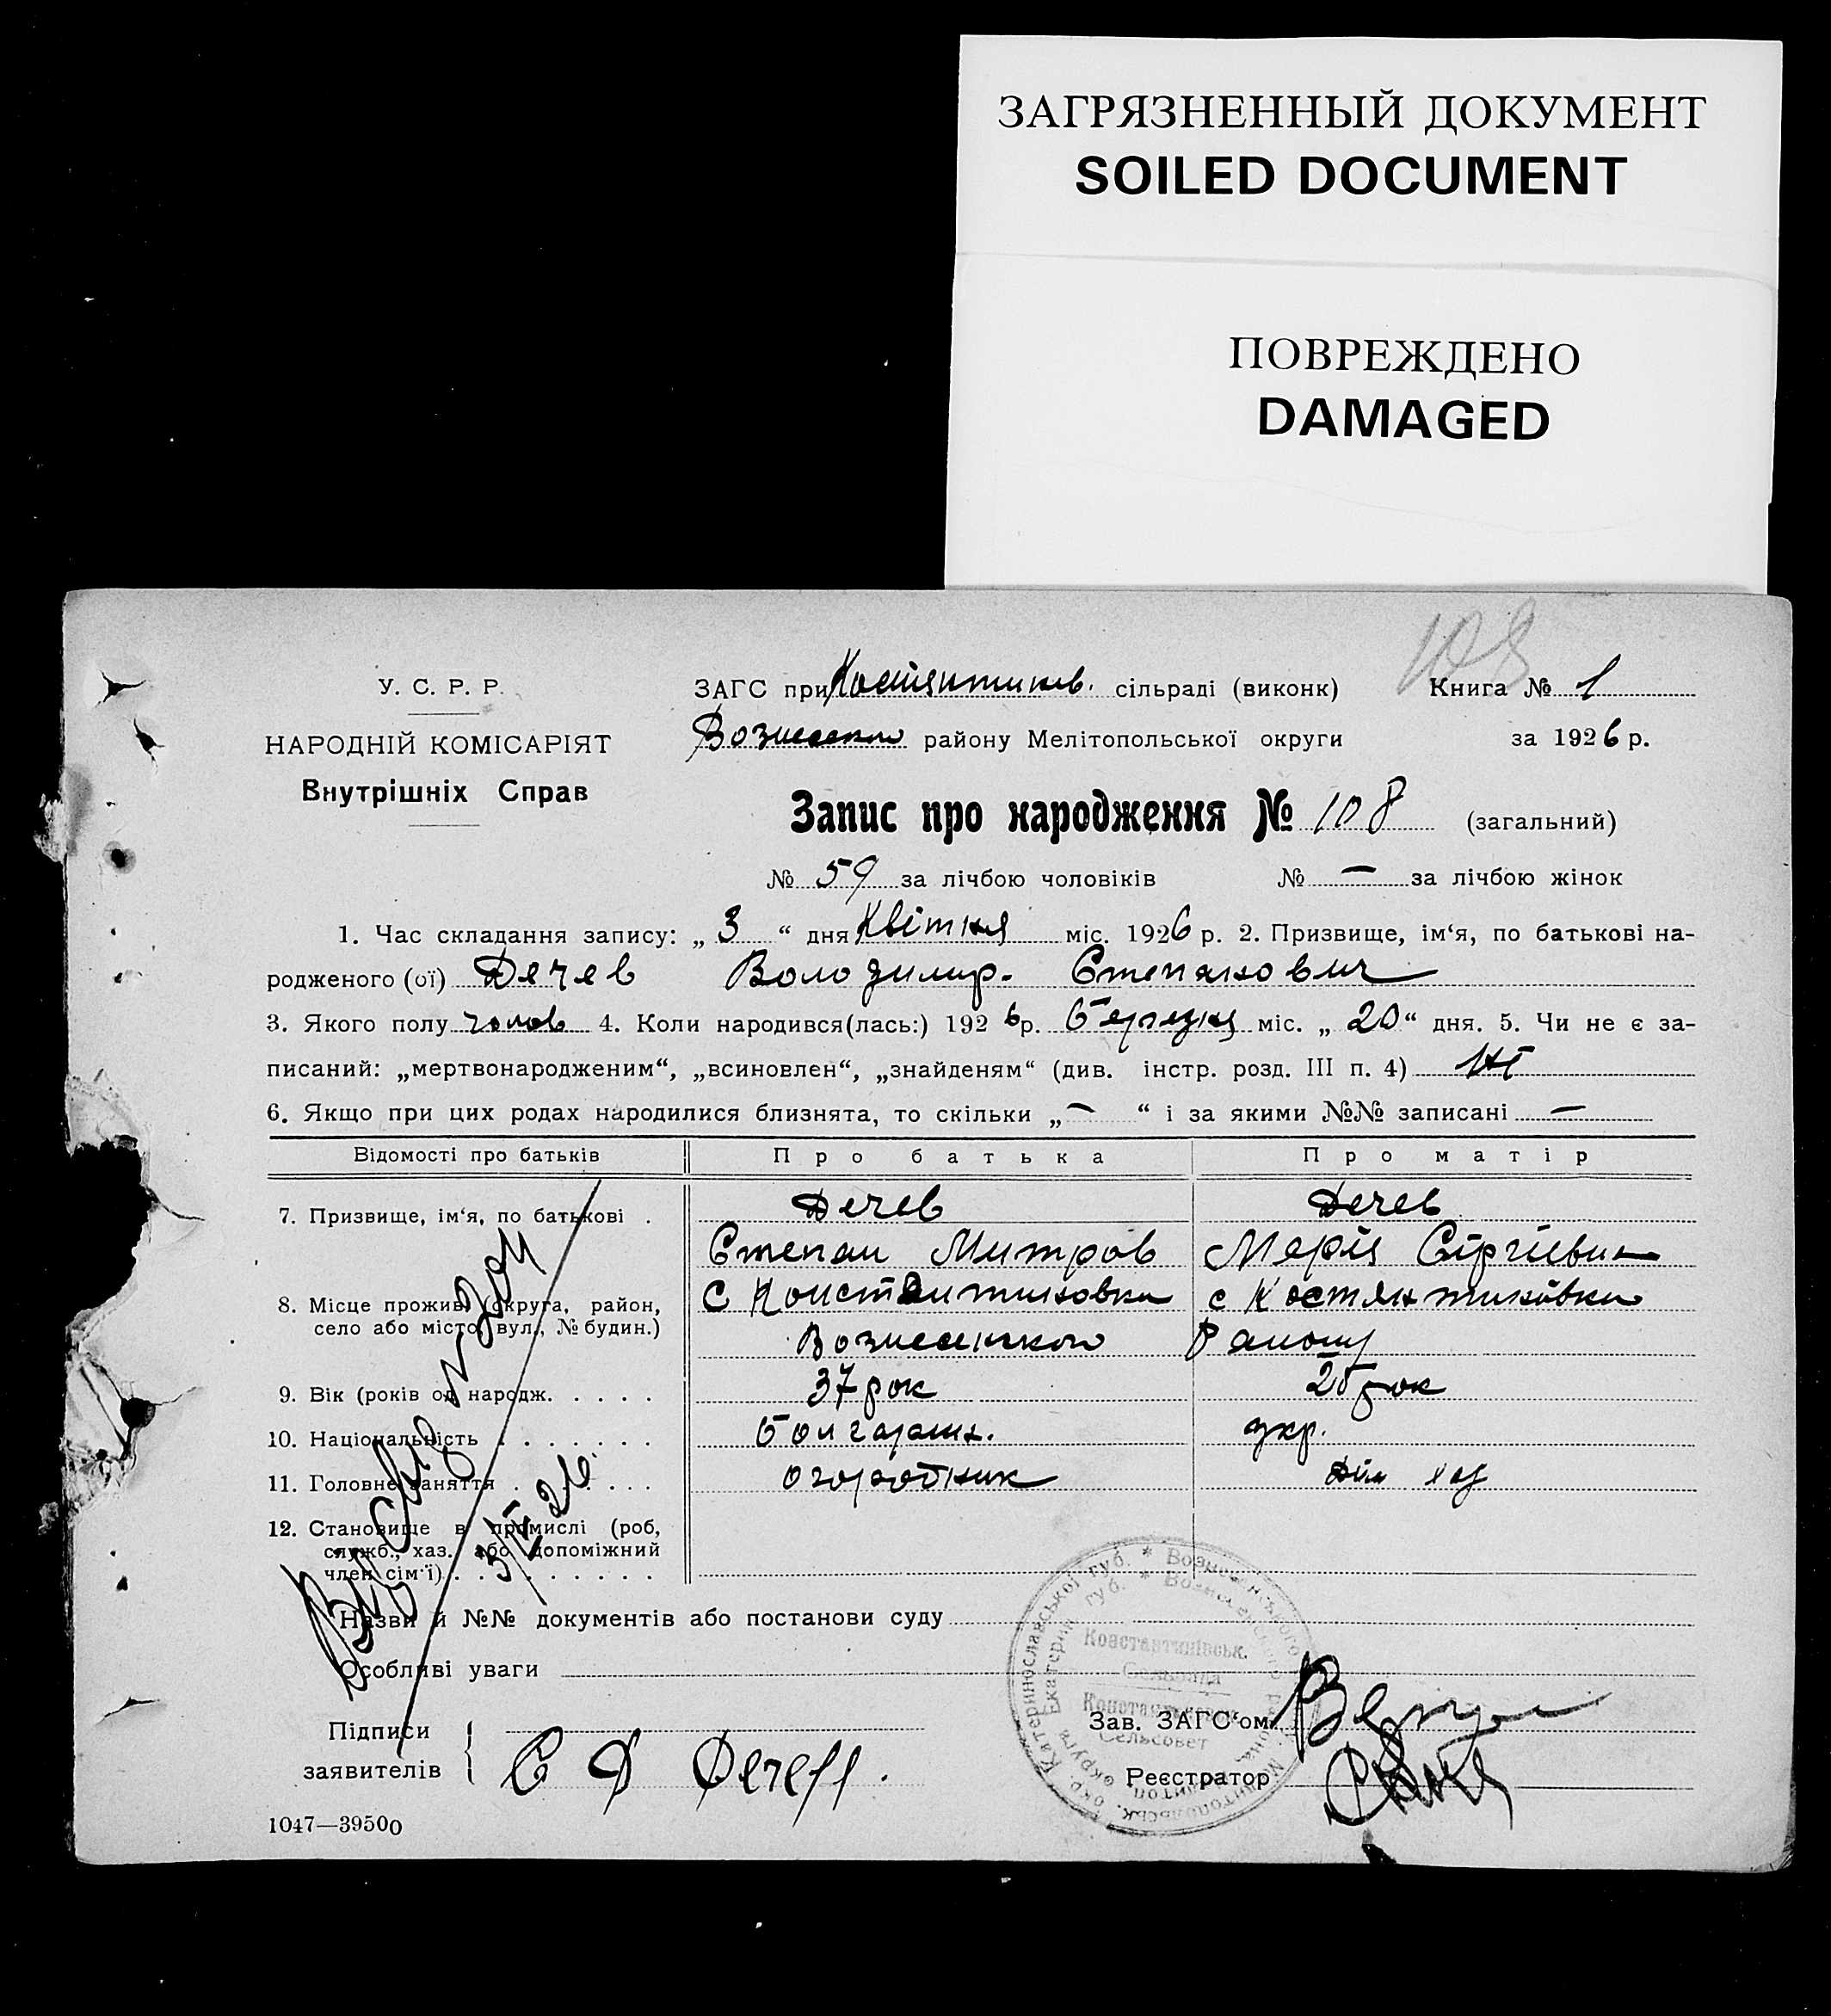 ЗАГРЯЗНЕННЫЙ ДОКУМЕНТ
SOILED DOCUMENT
ПОВРЕЖДЕНО
DAMAGED
108
У. С. Р. Р.
НАРОДНІЙ КОМІСАРІЯТ
Внутрішніх Справ
ЗАГС при Костянтинів. сільраді (виконк) Книга № 1
Вознесенко району Мелітопольської округи за 1926 р.
Запис про народження № 108 (загальний)
№ 59 за лічбою чоловіків № — за лічбою жінок
1. Час складання запису: „ 3 “ дня Квітня міс. 1926 р. 2. Призвище, ім‘я, по батькові на-
родженого (ої) Дечев Володимир. Степанович
3. Якого полу чолов 4. Коли народився(лась:) 192 6р. березня міс. „ 20 “ дня. 5. Чи не є за-
писаний: „мертвонародженим“, „всиновлен“, „знайденям“ (див. інстр. розд. III п. 4) ні
6. Якщо при цих родах народилися близнята, то скільки „ — “ і за якими №№ записані —
Відомості про батьків Про батька Про матір
7. Призвище, ім‘я, по батькові . Дечев Дечев
Степан Митров Марія Сіргіевна
8. Місце прожив. (округа, район, с Константиновки с Костянтинівки
село або місто, вул., № будин.)
Вознесенкого Раиону
9. Вік (років од народж. . . . . 37 рок 25 рок
10. Національність . . . . . . . болгарин. укр.
11. Головне заняття . . . . . . огородник дім хоз
12. Становище в промислі (роб,
служб., хаз. або допоміжний
член сім‘ї) . . . . . . . . . .
3/IV 26.
Назви й №№ документів або постанови суду
Особливі уваги
Підписи
заявителів
С Д Дечевъ.
Зав. ЗАГС‘ом
Реєстратор
Константинівськ.
Сельрада
Сельсовет
1047—39500